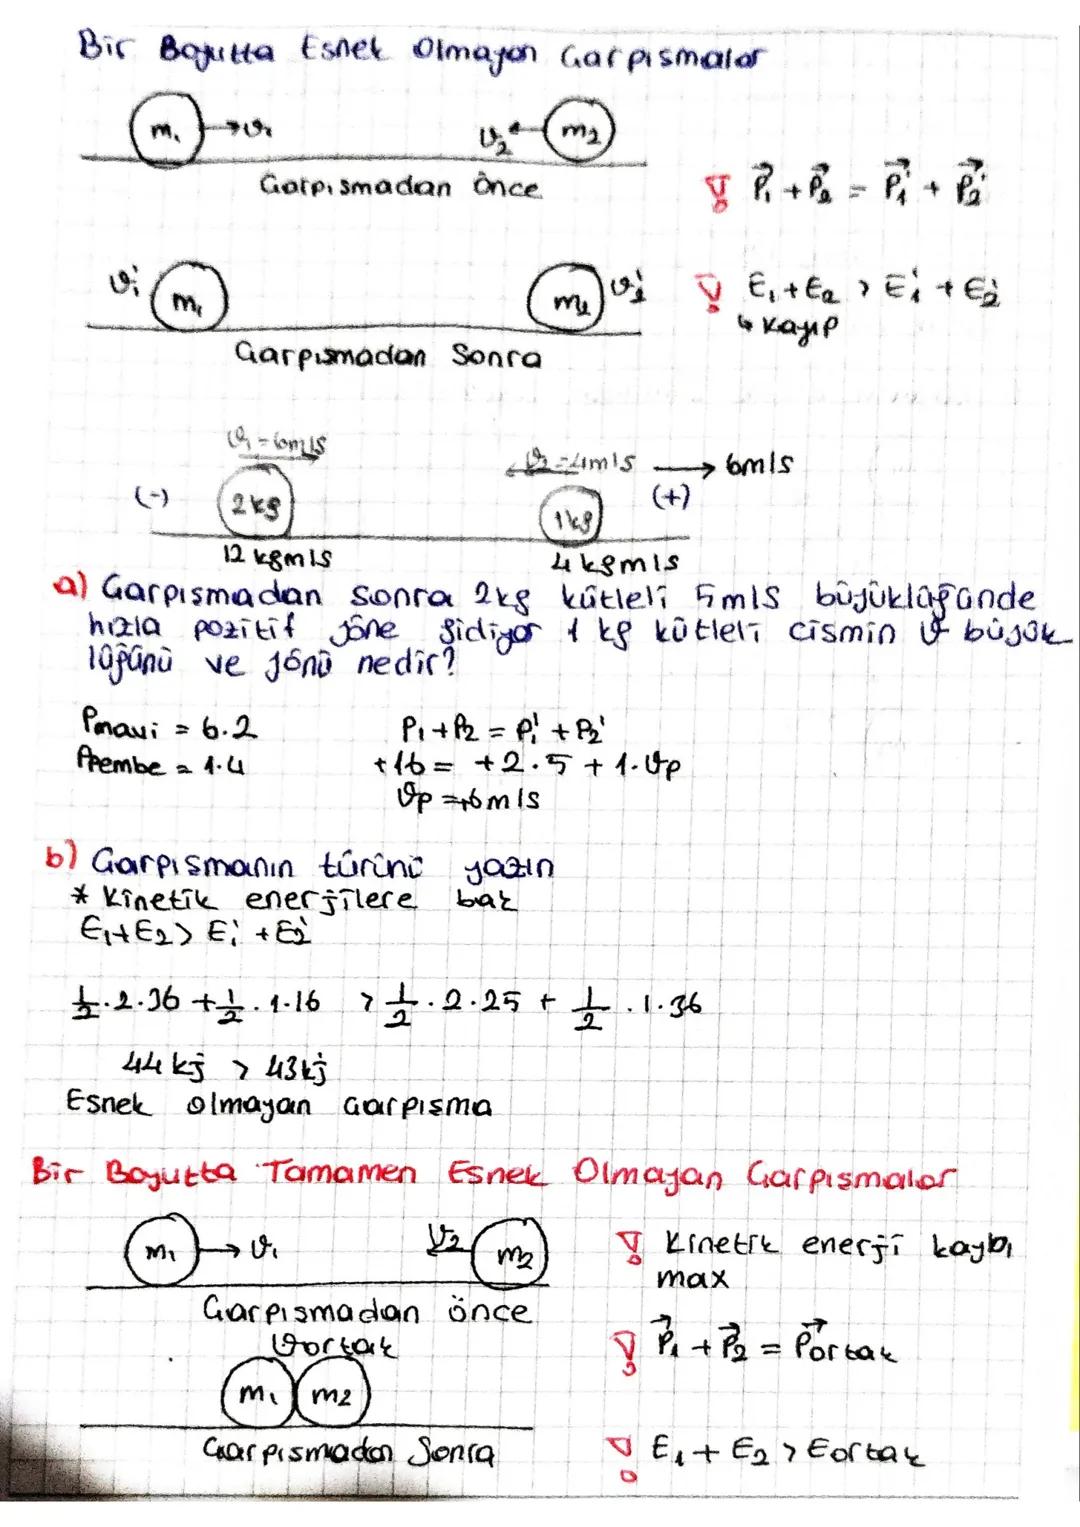 Bir Boyutta Esnek Olmayan Çarpışmalar
m₁ → ϑ₁ ϑ₂ ← m₂
Çarpışmadan Önce
! P⃗₁ + P⃗₂ = P⃗₁' + P⃗₂'
ϑ₁' m₁ m₂ ϑ₂'
! E₁ + E₂ > E₁' + E₂'
↳ kayıp
Çarpışmadan Sonra
ϑ₁ = 6m/s ϑ₂ = 4m/s → 6m/s
(-) 2 kg 1kg (+)
12 kgm/s 4 kgm/s
a) Çarpışmadan sonra 2kg kütleli 5m/s büyüklüğünde
hızla pozitif yöne gidiyor 1 kg kütleli cismin ϑ büyük
lüğünü ve yönü nedir?
Pmavi = 6.2
Ppembe = 1.4
P₁ + P₂ = P₁' + P₂'
+16 = +2.5 + 1.ϑp
ϑp = +6m/s
b) Çarpışmanın türünü yazın
* Kinetik enerjilere bak
E₁+E₂ > E₁' + E₂'
1/2 . 2.36 + 1/2 . 1.16 > 1/2 . 2.25 + 1/2 . 1.36
44 kj > 43kj
Esnek olmayan çarpışma
Bir Boyutta Tamamen Esnek Olmayan Çarpışmalar
m₁ → ϑ₁ ϑ₂ m₂
! Kinetik enerji kaybı
max
Çarpışmadan önce
ϑortak
! P⃗₁ + P⃗₂ = P⃗ortak
m₁ m₂
Çarpışmadan Sonra
! E₁ + E₂ > Eortak